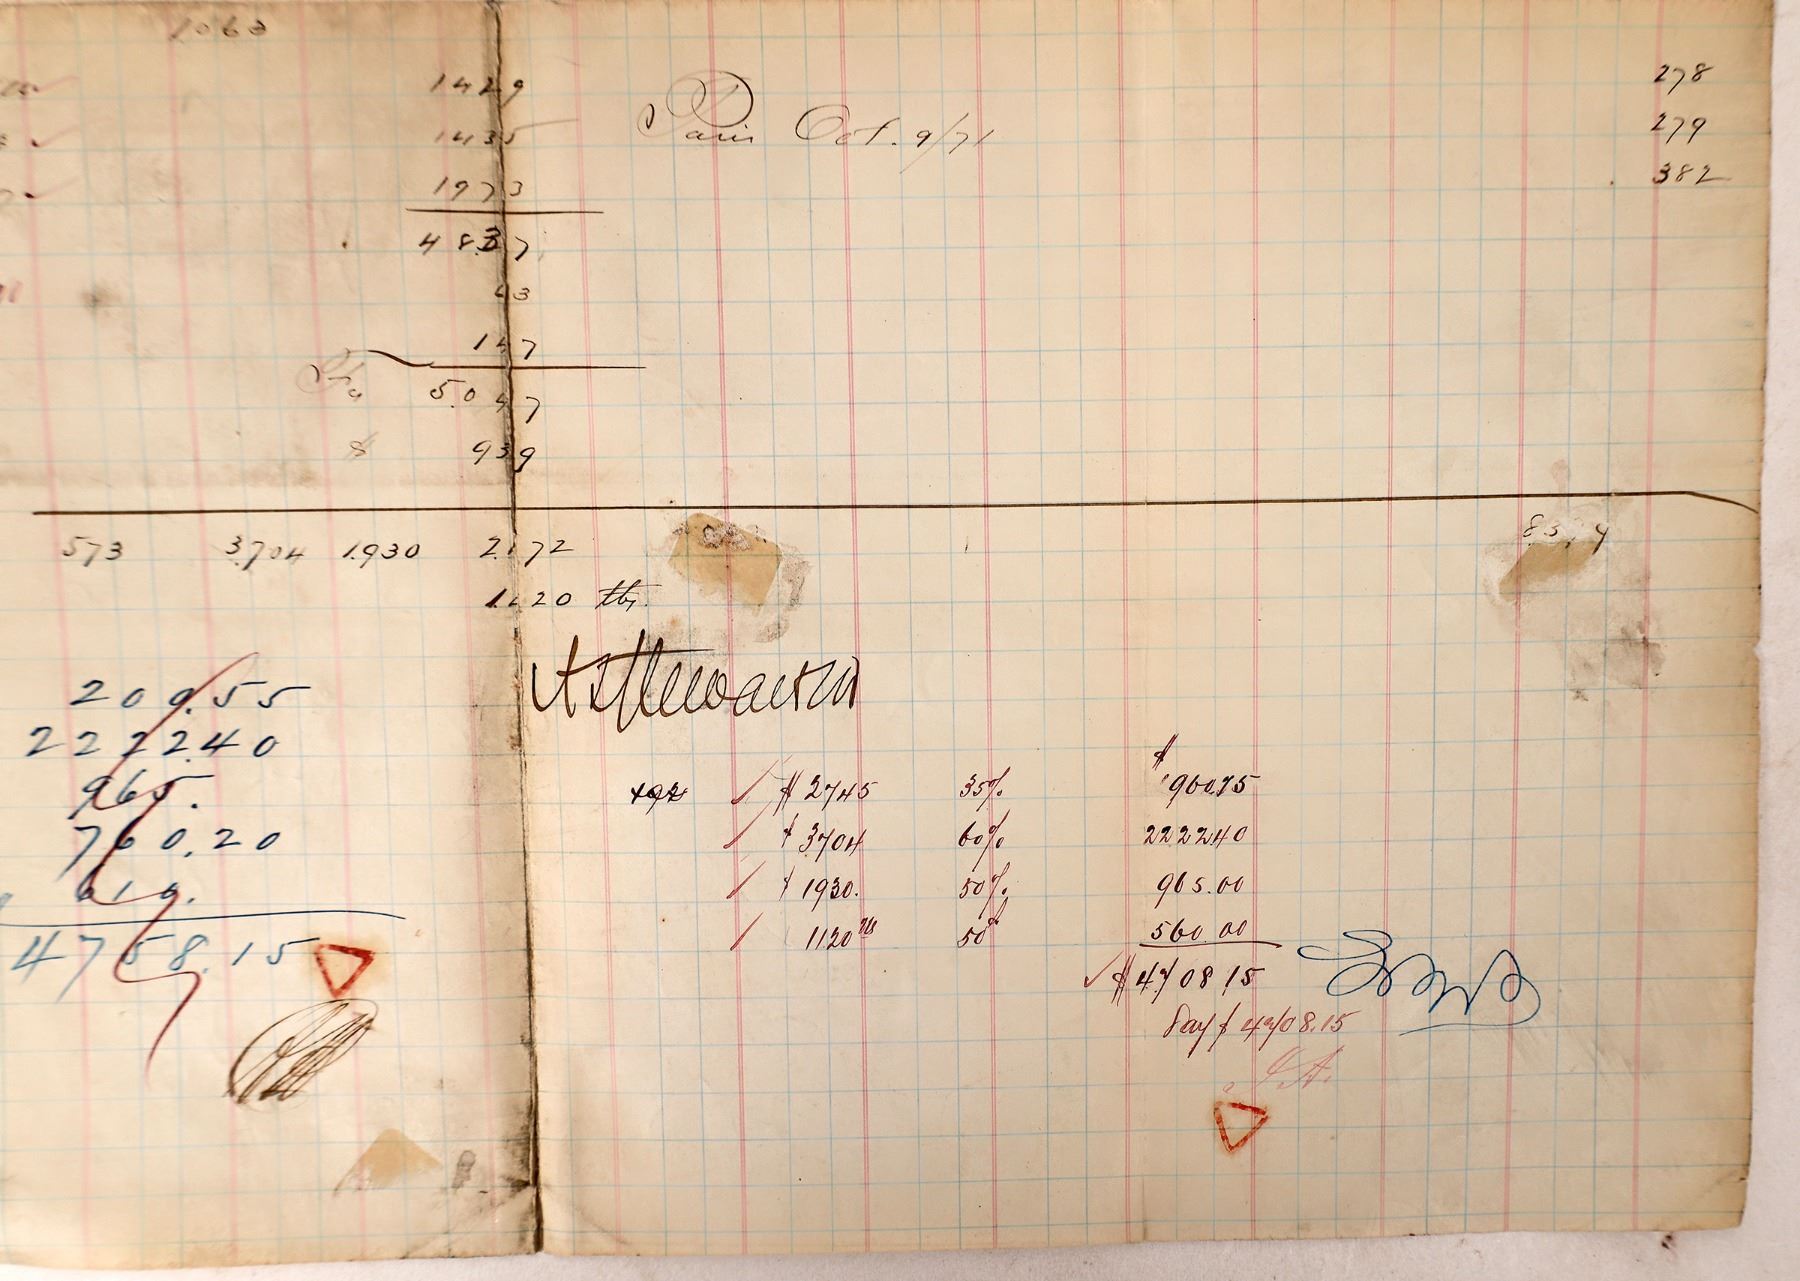 1063
1429
1435
1973
48.37
43
147
Fcs 5.047
$ 939
Paris Oct. 9/71
278
279
382
573 3.704 1.930 2.172
1.120 lbs.
209.55
2222.40
965.
760.20
619.
4758.15
$
$ 2745 35% 960.75
" 3704 60% 2222 40
" 1930. 50% 965.00
1120 lbs 50¢ 560.00
$ 4708 15
Say $ 4708.15